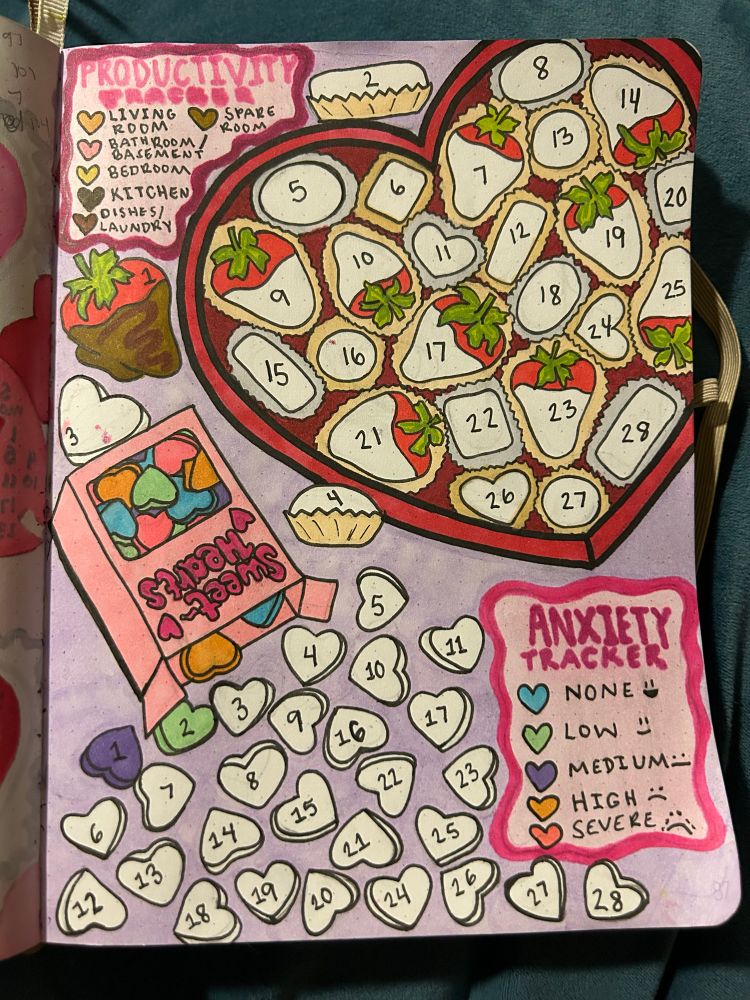 PRODUCTIVITY
TRACKER
LIVING
ROOM
SPARE
ROOM
BATHROOM/
BASEMENT
BEDROOM
KITCHEN
DISHES/
LAUNDRY
1
2
3
4
5
6
7
8
9
10
11
12
13
14
15
16
17
18
19
20
21
22
23
24
25
26
27
28
Sweet-
Hearts
ANXIETY
TRACKER
NONE
LOW
MEDIUM
HIGH
SEVERE
1
2
3
4
5
6
7
8
9
10
11
12
13
14
15
16
17
18
19
10
21
22
23
24
25
26
27
28